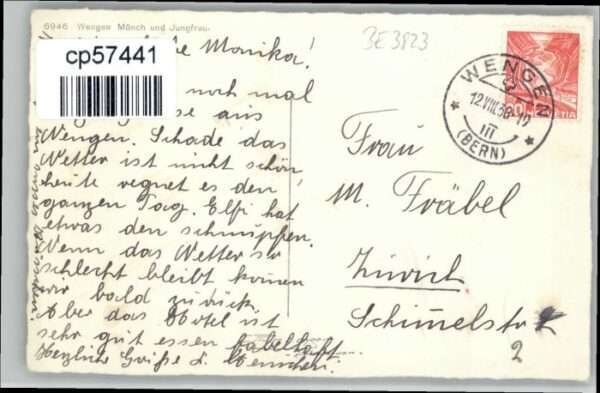 6946 Wengen Mönch und Jungfrau.
BE3823
Monika!
cp57441
noch mal
aus
Wengen. Schade das
Wetter ist nicht schön
heute regnet es den
ganzen Tag. Elfi hat
etwas den schnupfen.
Wenn das Wetter so
schlecht bleibt können
wir bald zurück.
Aber das Hotel ist
sehr gut essen fabelhaft.
Herzliche Grüße
Frau
M. Fräbel
Zürich
Schimelstr
2
WENGEN
12.VIII.38-19
III
(BERN)
HELVETIA